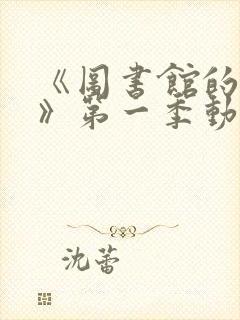 《圖書館的
》第一季動
沈蕾